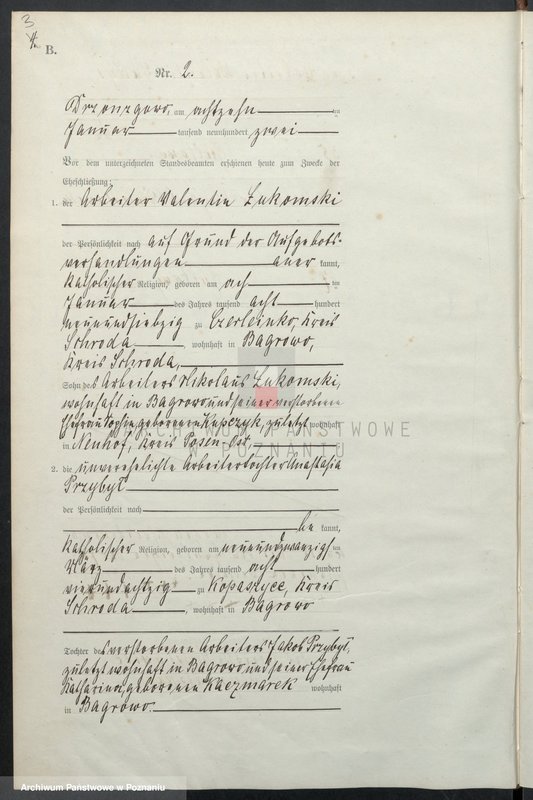 3
B.
Nr. 2.
am achtzehn ten
Januar tausend neunhundert zwei
Vor dem unterzeichneten Standesbeamten erschienen heute zum Zwecke der
Eheschließung:
1. der Arbeiter Valentin Lukomski
der Persönlichkeit nach auf Grund der Aufgebots-
verhandlungen aner kannt,
katholischer Religion, geboren am ten
Januar des Jahres tausend acht hundert
neunundsiebzig zu Czerleinko, Kreis
Schroda, wohnhaft in Bagrowo,
Kreis Schroda,
Sohn des Arbeiters Nikolaus Lukomski,
wohnhaft in Bagrowo und seiner verstorbenen
Ehefrau geborenen Kupczyk, zuletzt wohnhaft
in Neuhof, Kreis Posen-Ost.
2. die unverehelichte Arbeitertochter Anastasia
Przybyl
der Persönlichkeit nach
be kannt,
katholischer Religion, geboren am neunundzwanzigsten
März des Jahres tausend acht hundert
vierundachtzig zu Kopaszyce, Kreis
Schroda, wohnhaft in Bagrowo
Tochter des verstorbenen Arbeiters Jakob Przybyl,
zuletzt wohnhaft in Bagrowo und seiner Ehefrau
Katharina, geborenen Kaczmarek wohnhaft
in Bagrowo.
ARCHIWUM PAŃSTWOWE
W POZNANIU
Archiwum Państwowe w Poznaniu